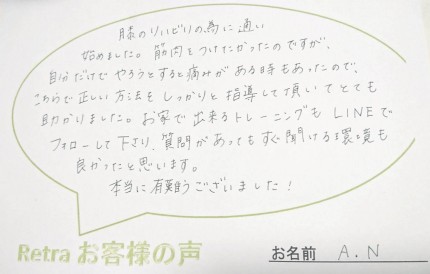 膝のリハビリの為に通い
始めました。筋肉をつけたかったのですが、
自分だけでやろうとすると痛みがある時もあったので、
こちらで正しい方法をしっかりと指導して頂いてとても
助かりました。お家で出来るトレーニングもLINEで
フォローして下さり、質問があってもすぐ聞ける環境も
良かったと思います。
本当に有難うございました！
Retra お客様の声
お名前 A.N